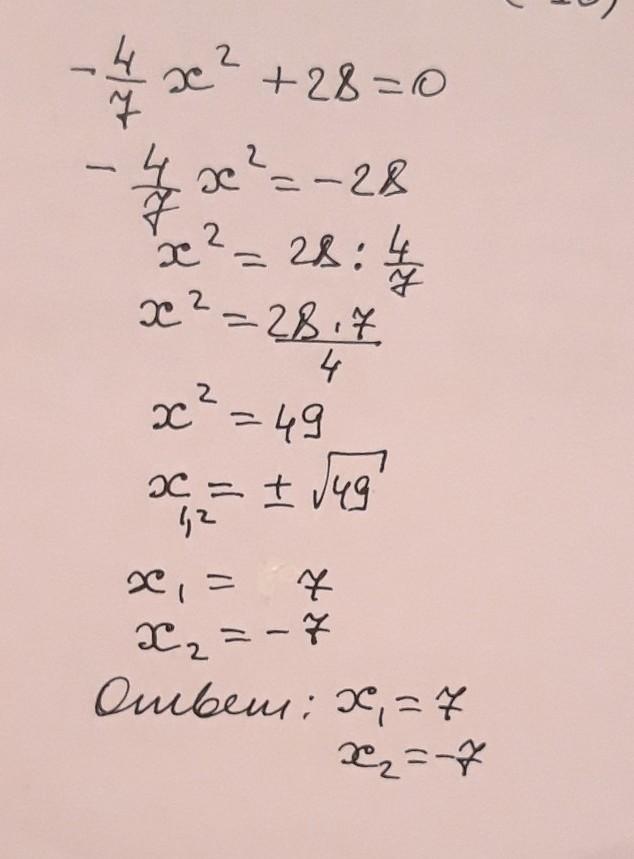 -4/7 x² + 28 = 0
-4/7 x² = -28
x² = 28 : 4/7
x² = 28·7/4
x² = 49
x₁,₂ = ± √49
x₁ = 7
x₂ = -7
Ответ: x₁ = 7
x₂ = -7